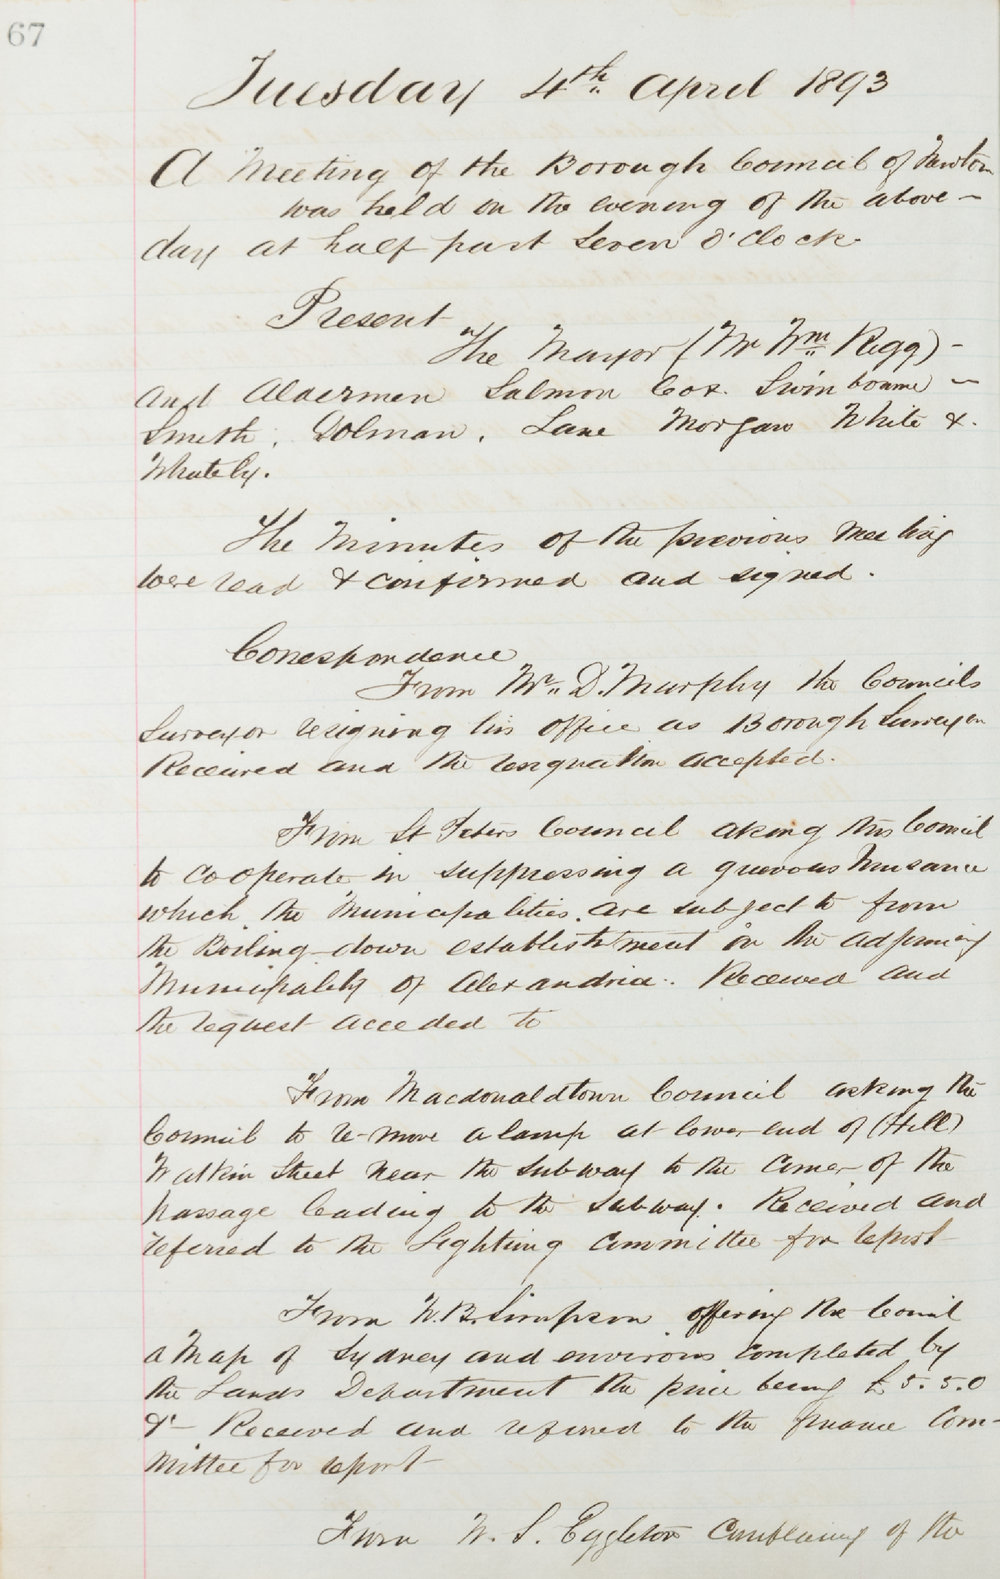 67
Tuesday 4th April 1893
A Meeting of the Borough Council of Newton
was held on the evening of the above -
day at half past Seven O'clock
Present
The Mayor (Mr Wm Rigg) -
and Aldermen Salmon Cox. Swinbourne -
Smith, Dolman, Lane Morgan White &.
Whately.
The Minutes of the previous Meeting
were read & confirmed and signed.
Correspondence
From Mr. D. Murphy the Councils
Surveyor resigning his office as Borough Surveyor
Received and the resignation accepted.
From St Peters Council aking this Council
to cooperate in suppressing a grievous Nuisance
which the Municipalities are subject to from
the Boiling-down establishment in the adjoining
Municipality of Alexandria. Received and
the request acceded to
From Macdonaldtown Council asking the
Council to re-move a lamp at lower end of (Hill)
Watkin Street near the subway to the corner of the
passage leading to the Subway. Received and
referred to the Lighting Committee for report
From W. B. Simpson offering the Council
a Map of Sydney and environs completed by
the Lands Department the price being £5.5.0
&- Received and referred to the finance Com-
mittee for report
From W. S. Eggleton Complaining of the